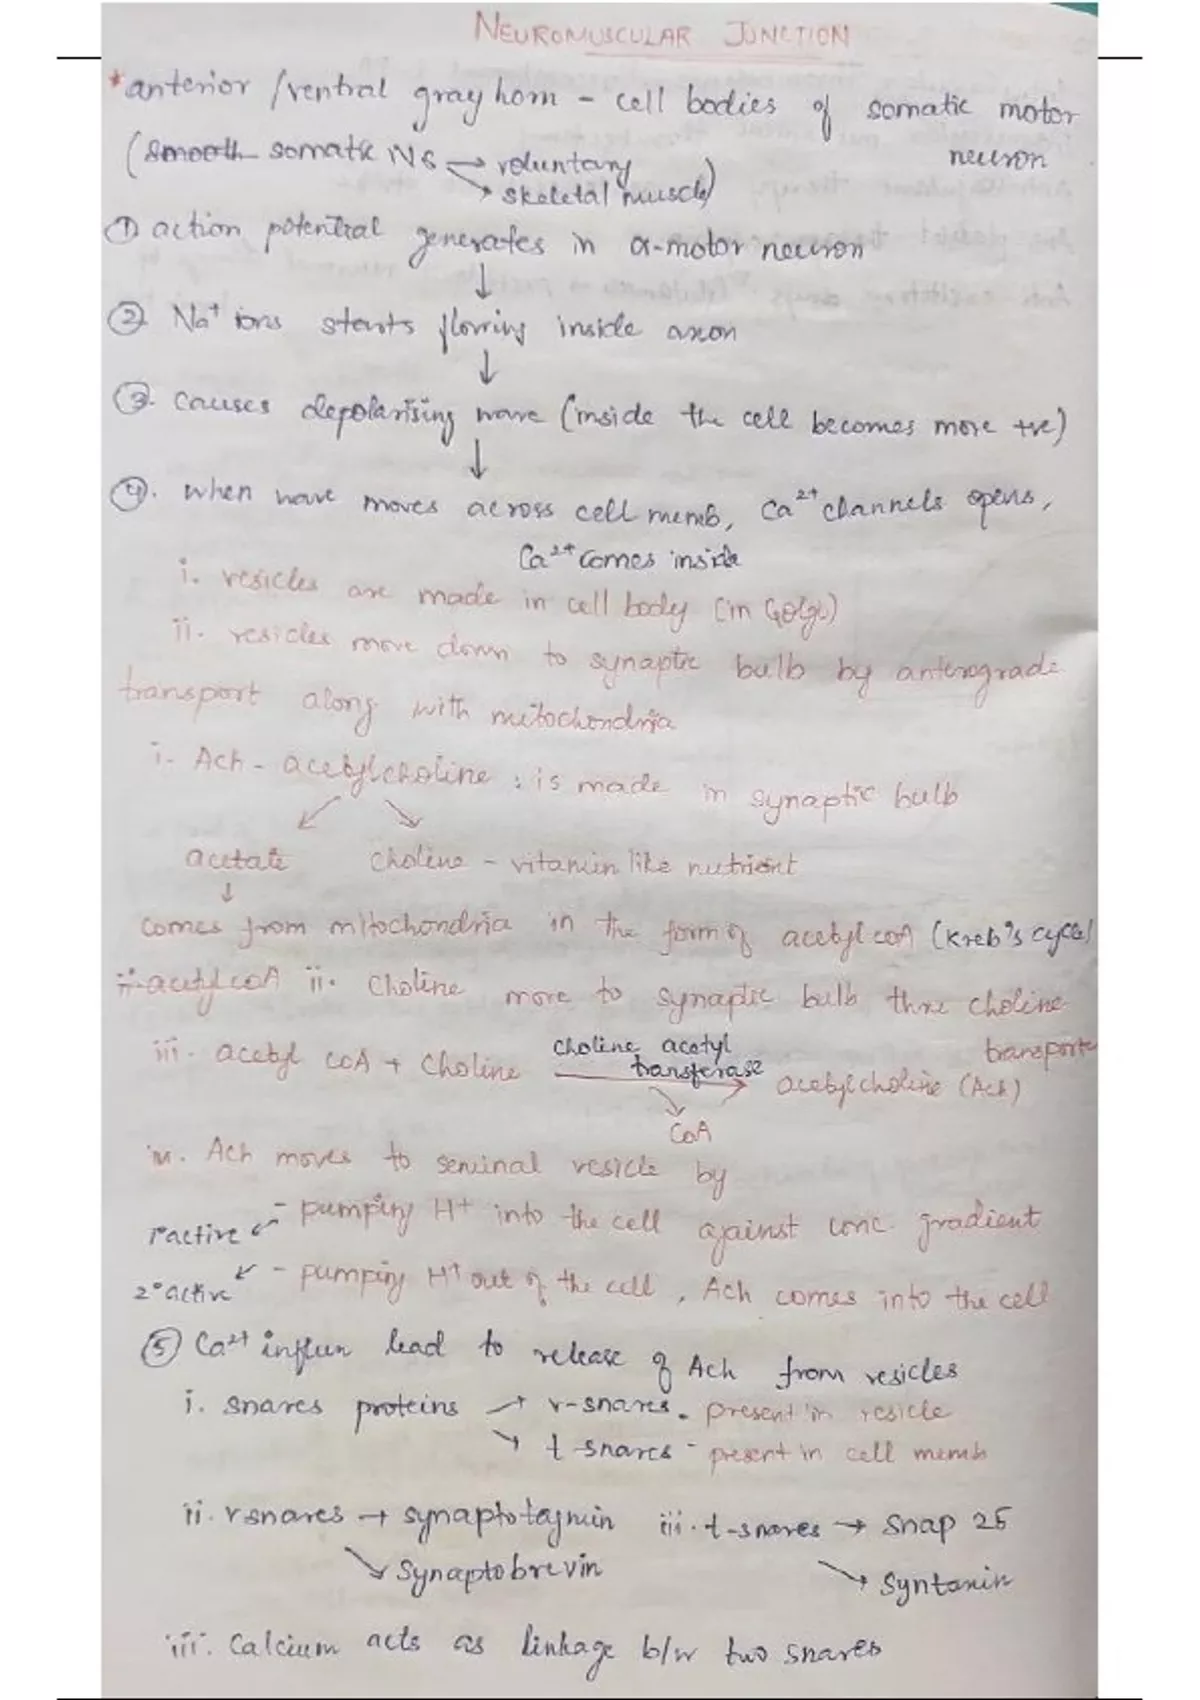 NEUROMUSCULAR JUNCTION
* anterior /ventral gray horn - cell bodies of somatic motor
neuron
(smooth somatic NS → voluntary
→ skeletal muscle)
① action potential generates in α-motor neuron
↓
② Na⁺ ions starts flowing inside axon
↓
③. causes depolarising wave (inside the cell becomes more +ve)
↓
④. when wave moves across cell memb, Ca²⁺ channels opens,
Ca²⁺ comes inside
i. vesicles are made in cell body (in Golgi)
ii. vesicles move down to synaptic bulb by anterograde
transport along with mitochondria
i- Ach - acetylcholine : is made in synaptic bulb
acetate choline - vitamin like nutrient
↓
comes from mitochondria in the form of acetyl coA (Kreb's cycle)
ii-acetyl coA ii. Choline move to synaptic bulb thru choline
transporter
iii. acetyl coA + Choline choline acetyl transferase → acetylcholine (Ach)
CoA
iv. Ach moves to seminal vesicle by
1°active ← - pumping H⁺ into the cell against conc. gradient
2°active ← - pumping H⁺ out of the cell, Ach comes into the cell
⑤ Ca²⁺ influx lead to release of Ach from vesicles
i. snares proteins → v-snares - present in vesicle
→ t-snares - present in cell memb
ii. v snares → synaptotagmin iii. t-snares → Snap 25
↘ Synaptobrevin ↘ Syntaxin
iii. Calcium acts as linkage b/w two snares